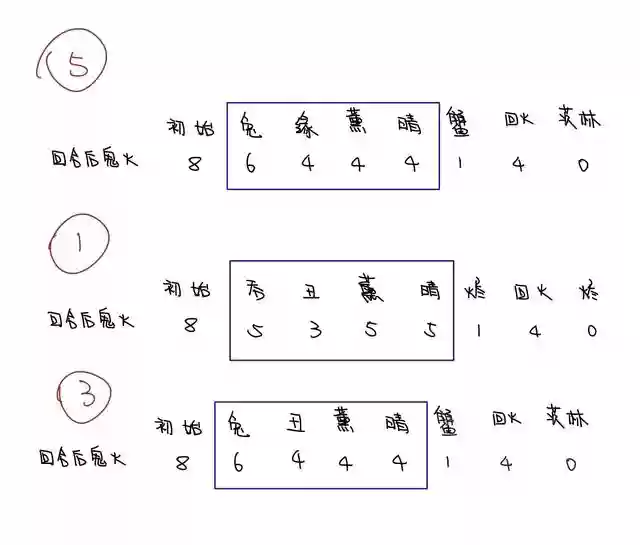 5
初始 兔 缘 薰 晴 蟹 回火 茨林
回合后鬼火 8 6 4 4 4 1 4 0
1
初始 丑 薰 晴 烬 回火 烬
回合后鬼火 8 5 3 5 5 1 4 0
3
初始 兔 丑 薰 晴 蟹 回火 茨林
回合后鬼火 8 6 4 4 4 1 4 0